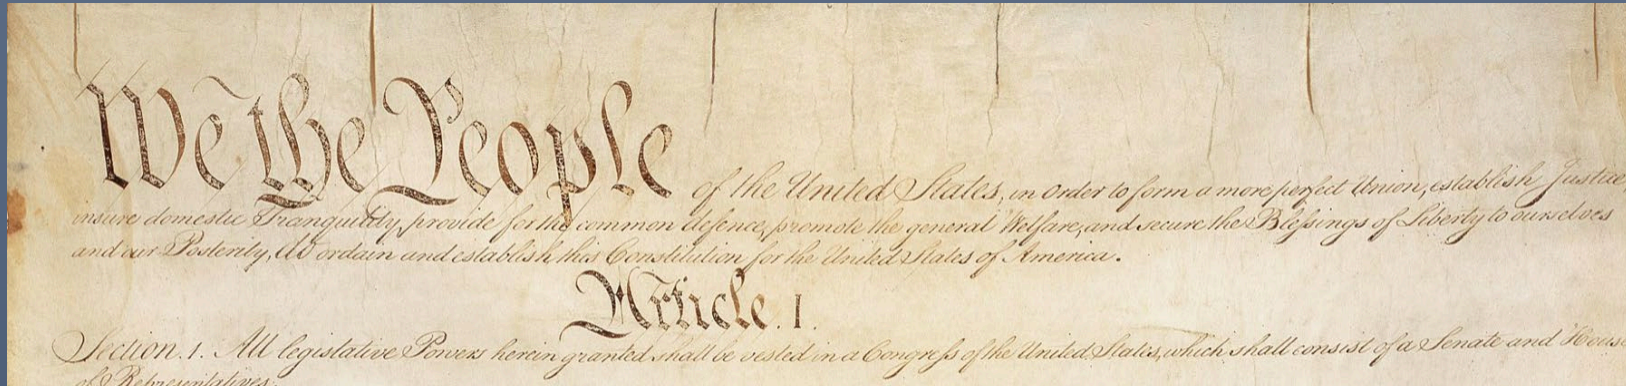 We the People of the United States, in Order to form a more perfect Union, establish Justice
insure domestic Tranquility, provide for the common defence, promote the general Welfare, and secure the Blessings of Liberty to ourselves
and our Posterity, do ordain and establish this Constitution for the United States of America.
Article. I.
Section. 1. All legislative Powers herein granted shall be vested in a Congress of the United States, which shall consist of a Senate and House
of Representatives.